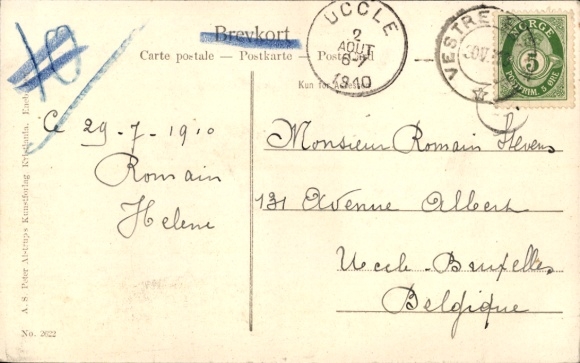 10
Brevkort
Carte postale — Postkarte — Post
Kun for
UCCLE
2
AOUT
6-7
1910
VESTRE
NORGE
5
POSTFRIM. 5 ØRE
Ce 29-7-1910
Romain
Helene
Monsieur Romain Stevens
131 Avenue Albert
Uccle-Bruxelles
Belgique
A. S. Peter Alstrups Kunstforlag
No. 2622